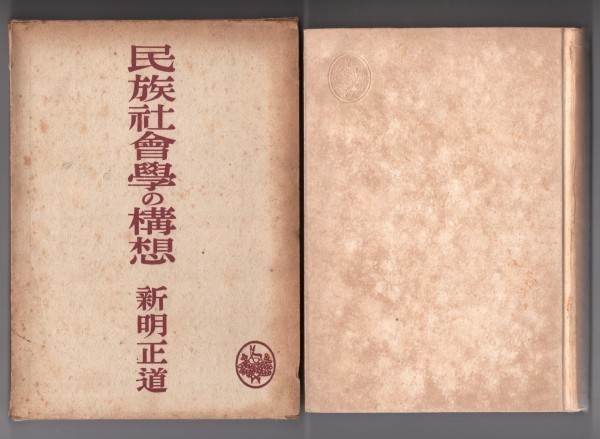 民族社會學の構想
新明正道